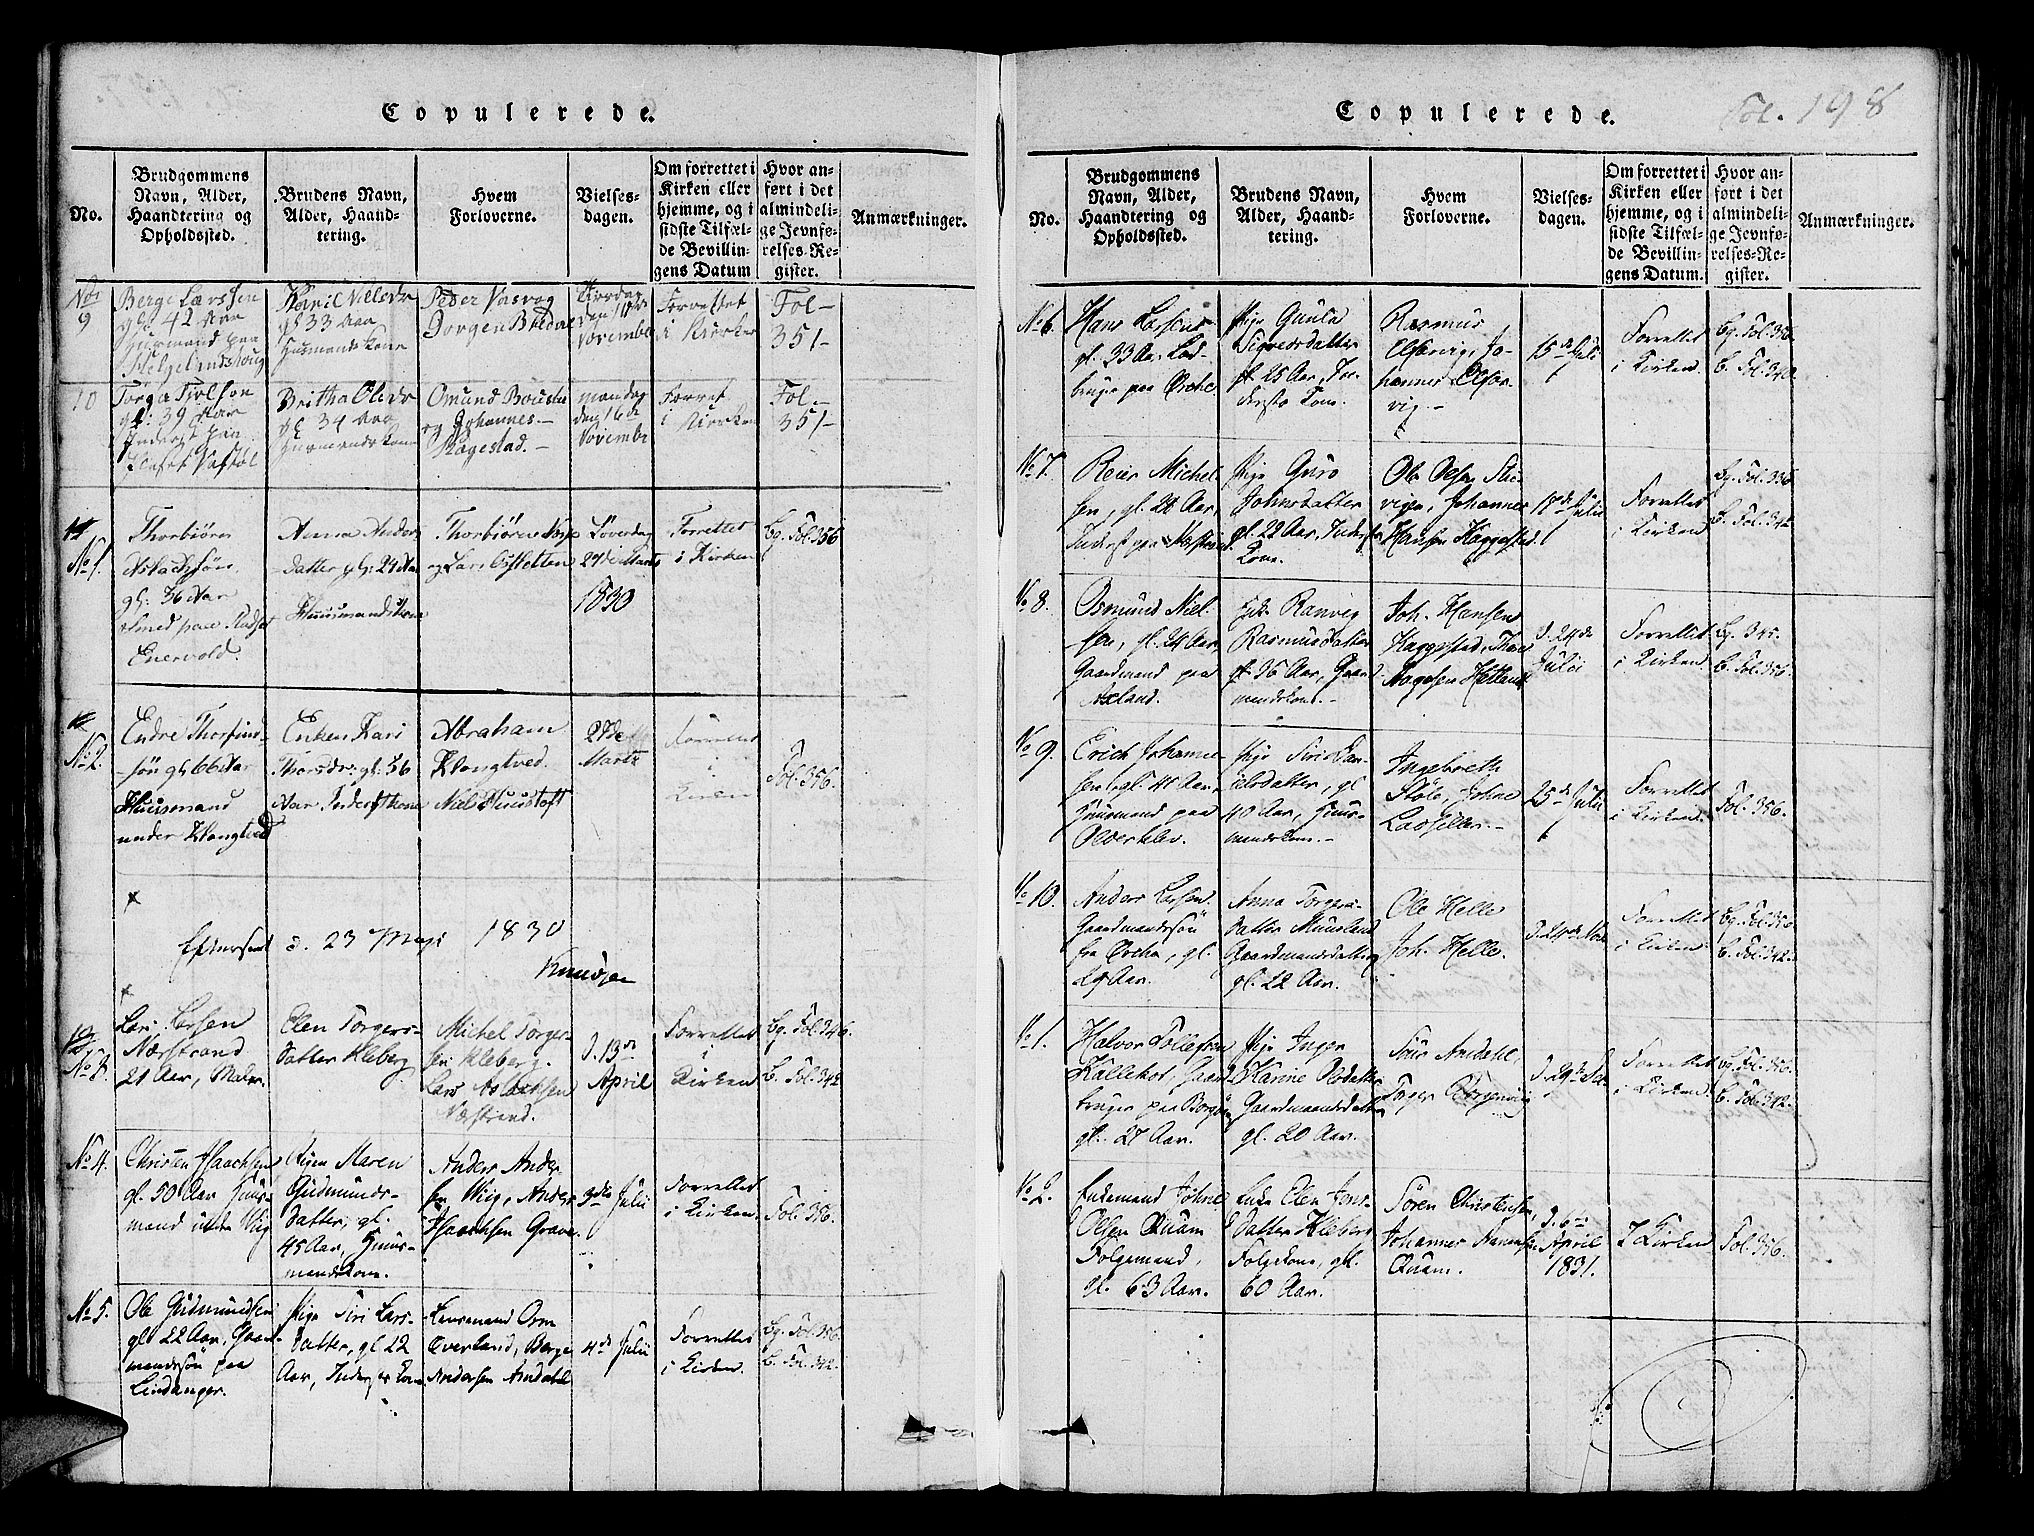 Copulerede.
No.
Brudgommens
Navn, Alder,
Haandtering og
Opholdssted.
Brudens Navn,
Alder, Haand-
tering.
Hvem
Forloverne.
Vielses-
dagen.
Om forrettet i
Kirken eller
hjemme, og i
sidste Tilfæl-
de Bevillin-
gens Datum
Hvor an-
ført i det
almindeli-
ge Jevnfø-
relses-Re-
gister.
Anmærkninger.
No
9
Berge Larssen
gl: 42 Aar
Huusmand paa
gl 33 Aar
Huusmands kone
Peder
Jørgen
November
Forrettet
i Kirken
Fol-
351-
10
gl: 39 Aar
Inderst paa
Britha Olsdr
gl 34 Aar
Omund
og Johannes
mandag
den 16de
November
i Kirken
Fol-
351-
No 1.
Thorbiørn
Aslachsøn
gl: 36 Aar
Smed paa
Anna Anders-
datter gl: 29 Aar
Huusmandskone
Thorbiørn
og Lars
Løverdag
27de Marts
1830
Forrettet
i Kirken
Bg. Fol. 356
No 2.
Endre Thorfins-
søn gl 66 Aar
Huusmand
under
Enken Kari
Thorsdr: gl: 56
Aar Inderstkone
Abraham
Marts
Forrettet
i
Kirken
Fol. 356.
Efterseet d. 23 Maji 1830
Knudsen
No 3.
Lars Larsen
Nærstrand
21 Aar, Maler.
Elen Torgers-
datter Kleberg.
Michel Torger-
sen Kleberg.
Lars Aslachsen
Nærstrand.
d. 13de
April
Forrettet
i
Kirken
Bg. Fol. 346.
B. Fol. 342
No 4.
Christen Isaachsen
gl. 50 Aar Huus-
mand under Wiig
Pigen Maren
Gudmunds-
datter, gl.
45 Aar, Huus-
mandskone.
Anders Ander-
sen Wiig, Anders
Isaachsen Grave.
3die Julii
Forrettet
i Kirken
Fol. 356.
No 5.
Ole Gudmundsen
gl 22 Aar, Gaard-
mandssøn paa
Lindanger.
Pige Siri Lars-
datter, gl 22
Aar, Inderstkone
Lensmand Orm
Øverland, Berge
Andersen Amdahl
4de Julii
Forrettet
i Kirken
Bg. Fol 356.
B. Fol. 342.
Copulerede.
Fol. 198
No.
Brudgommens
Navn, Alder,
Haandtering og
Opholdssted.
Brudens Navn,
Alder, Haand-
tering.
Hvem
Forloverne.
Vielses-
dagen.
Om forrettet i
Kirken eller
hjemme, og i
sidste Tilfæl-
de Bevillin-
gens Datum.
Hvor an-
ført i det
almindeli-
ge Jevnfø-
relses-Re-
gister.
Anmærkninger.
No 6.
Hans Larsen
gl. 33 Aar
bruger paa
Pige Gunla
Sigvardsdatter
gl. 25 Aar, In-
derste Kone.
Rasmus
Elfarvig, Jo-
hannes Elfar-
vig.-
15de Julii
Forrettet
i Kirken
Bg. Fol. 356.
B. Fol. 340
No 7.
Reier Michel-
sen, gl. 24 Aar,
Inderst paa
Pige Guro
Johnsdatter
gl. 22 Aar, Inderst
Kone.
Ole Olsen
vigen, Johannes
Hansen Haggestad.
18de Julii
Forrettet
i Kirken
Bg. Fol. 356
B. Fol. 342
No 8.
Osmund Niel-
sen, gl. 24 Aar,
Gaardmand paa
Axland.
Enke Ranveg
Rasmusdatter
gl. 36 Aar, Gaard-
mandskone.-
Joh. Hansen
Haggestad, Thore
Aagesen Hetland
d. 24de
Julii
Forrettet
i Kirken
Bg. 345.
B. Fol. 356.
No 9.
Erich Johanne-
sen, gl. 41 Aar,
Huusmand paa
Olverklev.
Pige Siri Da-
nielsdatter, gl
40 Aar, Huus-
mandskone.-
Ingebreth
Støle, Johne
25de Julii
Forrettet
i Kirken.
Fol. 356.
No 10.
Anders Larsen.
Gaardmandssøn
fra gl.
29 Aar.
Anna Torgers-
datter Muusland
Gaardmandsdatter
gl. 22 Aar.
Ole Helle
Joh. Helle.
d. 24de Nov.
Forrettet
i Kirken
Bg. Fol. 356
B. Fol. 342.
No 1.
Halvor Tollefsen
Gaard-
bruger paa
gl. 27 Aar.
Pige Inger
Karine Olsdatter
Gaardmandsdatter
gl. 20 Aar.
Amdahl
Torger
d. 29de
Forrettet
i Kirken
Bg. Fol. 356.
B. Fol. 342.
No 2.
Enkemand Johne
Olsen Quam
Folgemand,
gl. 63 Aar.
Enke Elen Jons-
datter Kleberg
Folgekone, gl.
60 Aar.
Søren Christensen,
Johannes Hansen
Quam.
d. 6te
April
1831.
I Kirken
Fol. 356.